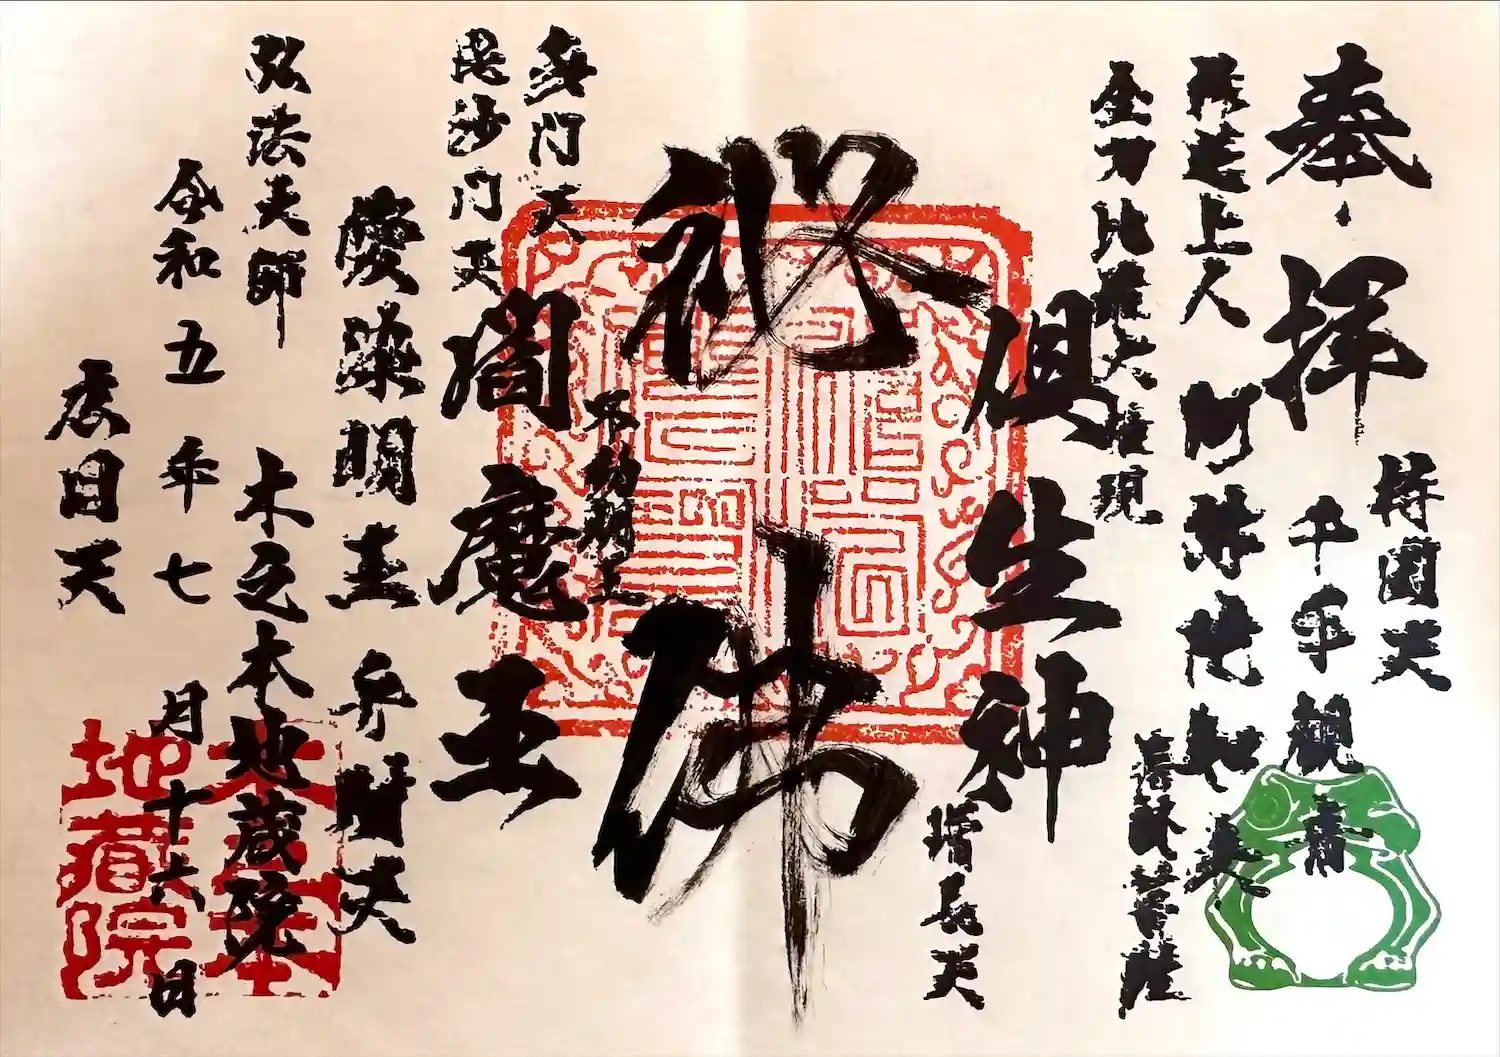 奉拝
持国天
千手観音
祚蓮上人
阿弥陀如来
金刀比羅大権現
倶生神
増長天
秘仏
不動明王
多門天
毘沙門天
閻魔王
愛染明王
弁財天
弘法大師
木之本地蔵院
令和五年七月十六日
広目天
木之本
地蔵院